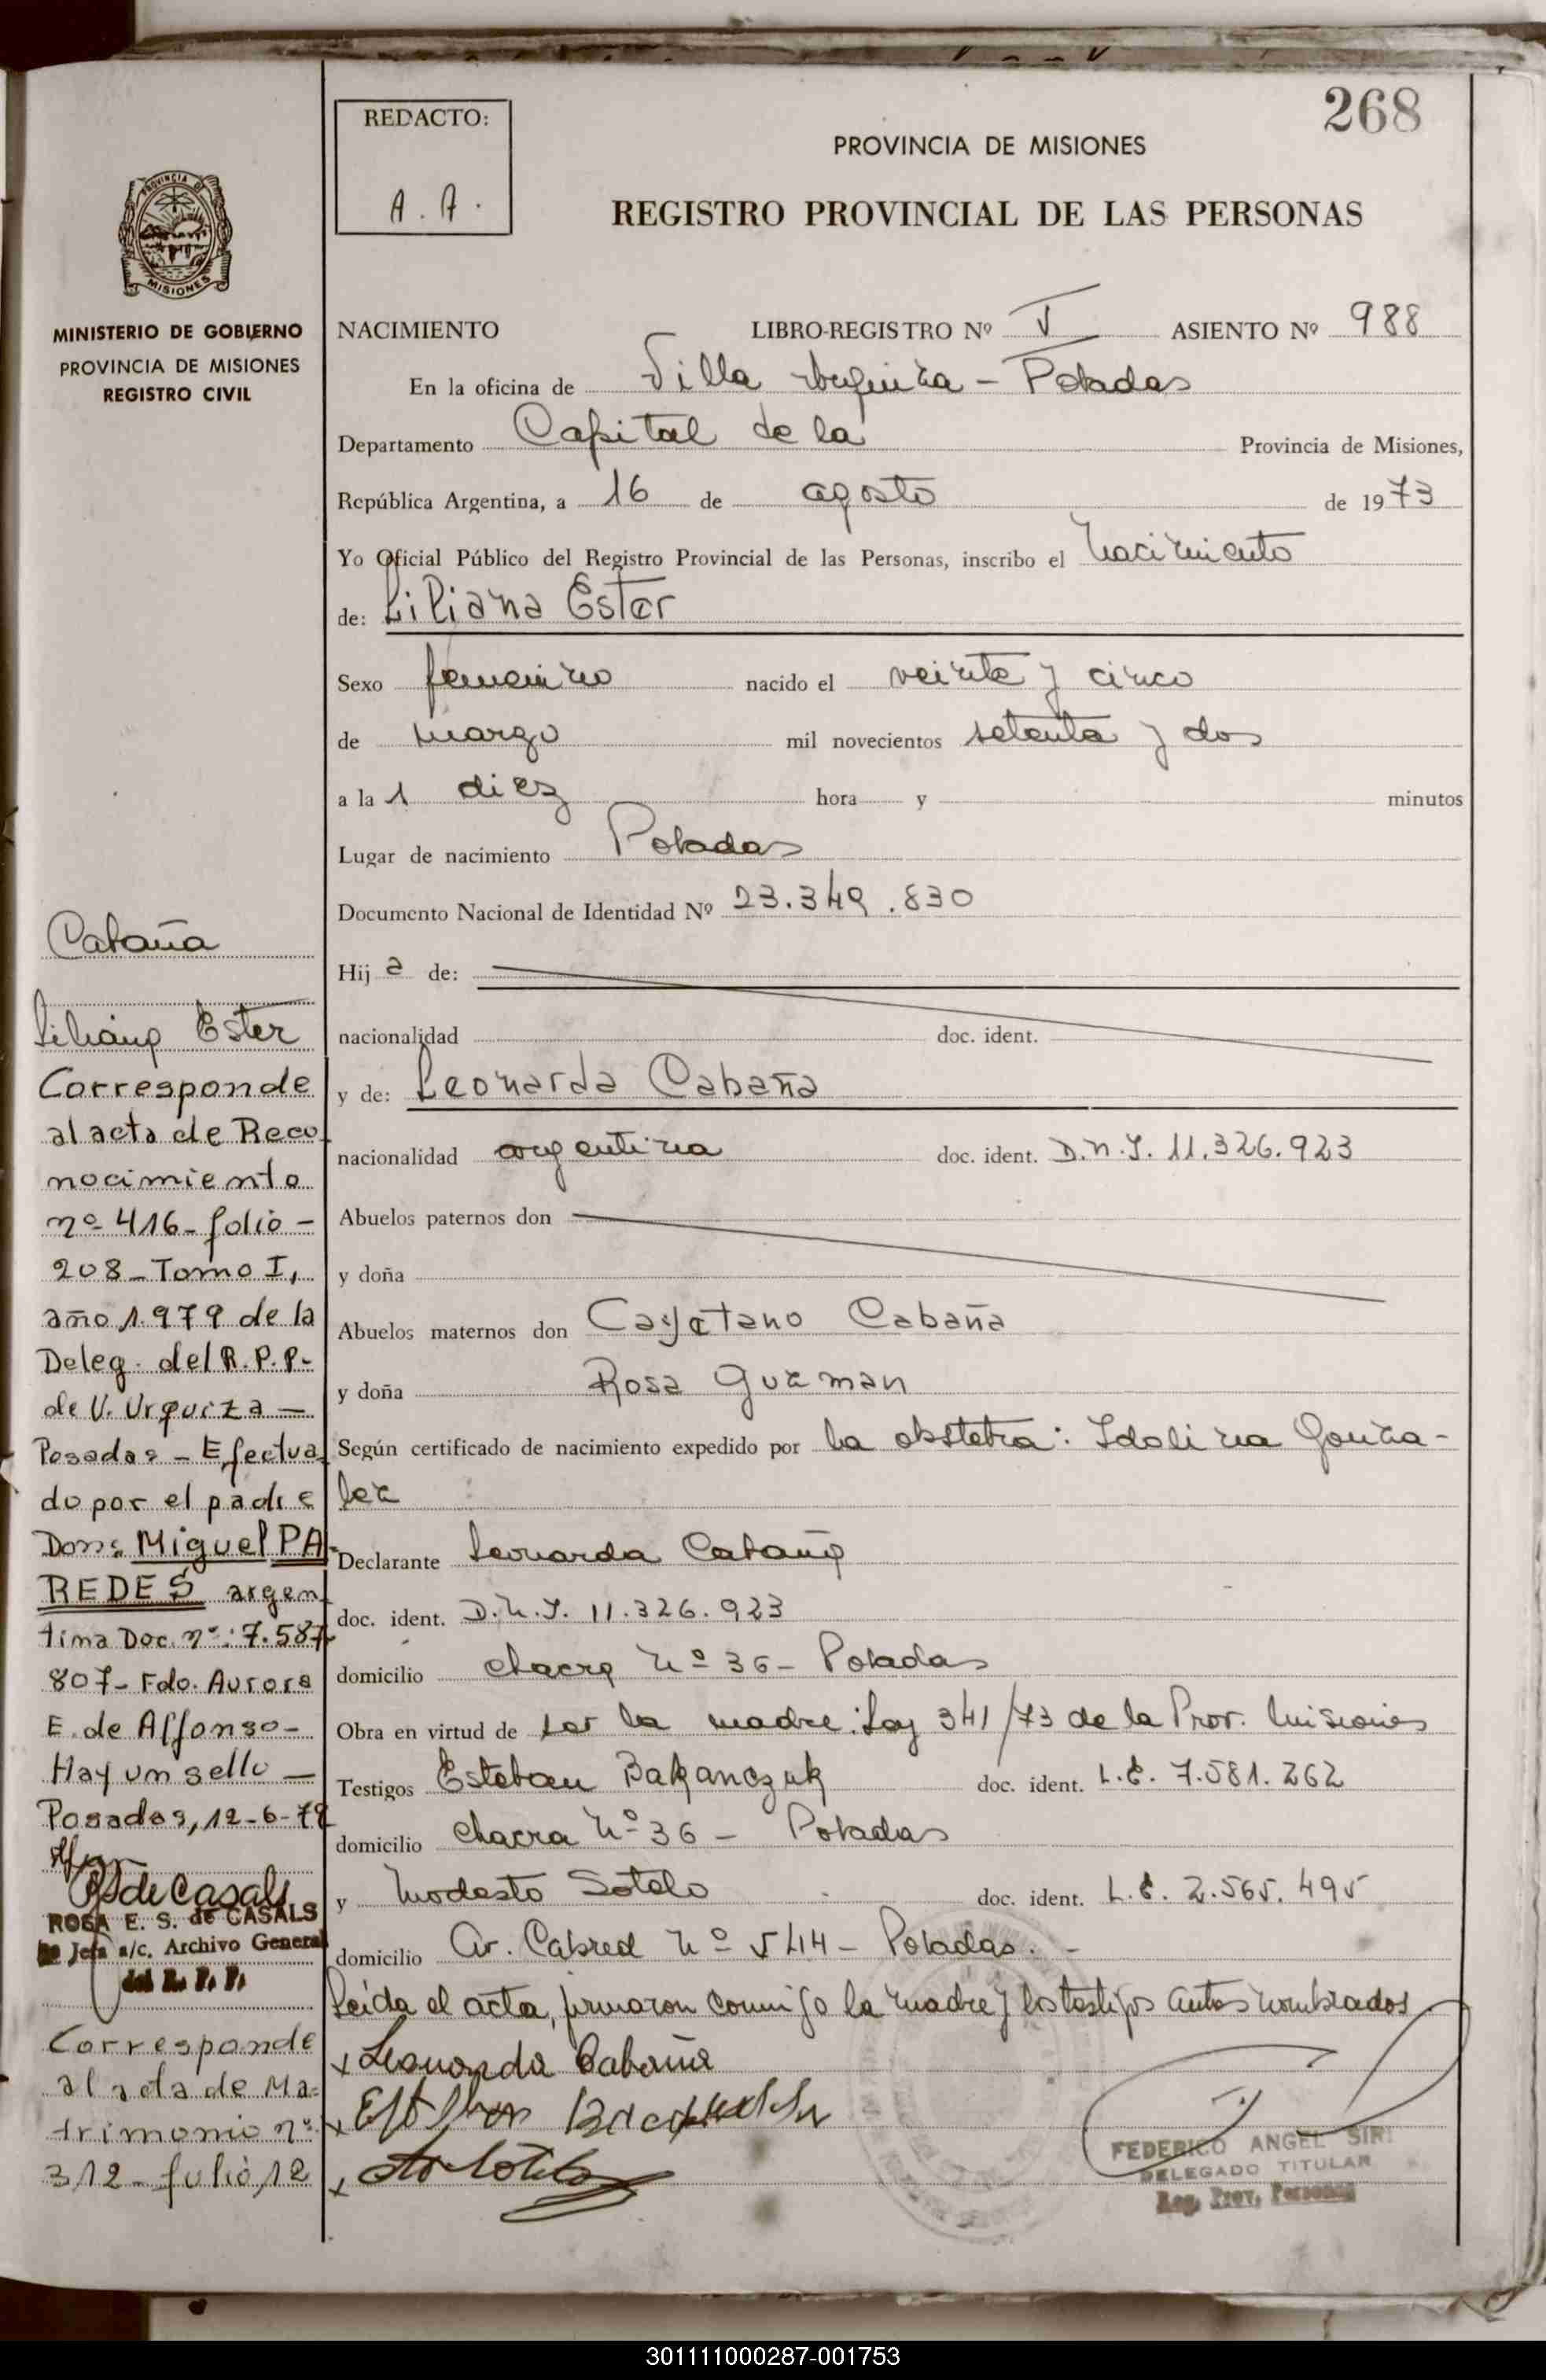 268
REDACTO:
A. A.
PROVINCIA DE MISIONES
REGISTRO PROVINCIAL DE LAS PERSONAS
PROVINCIA DE
MISIONES
MINISTERIO DE GOBIERNO
PROVINCIA DE MISIONES
REGISTRO CIVIL
NACIMIENTO LIBRO-REGISTRO Nº V ASIENTO Nº 988
En la oficina de Villa Urquiza - Posadas
Departamento Capital de la Provincia de Misiones,
República Argentina, a 16 de agosto de 1973
Yo Oficial Público del Registro Provincial de las Personas, inscribo el nacimiento
de: Liliana Ester
Sexo femenino nacido el veinte y cinco
de marzo mil novecientos setenta y dos
a la 1 diez hora y minutos
Lugar de nacimiento Posadas
Documento Nacional de Identidad Nº 23.349.830
Hij a de:
nacionalidad doc. ident.
y de: Leonarda Cabaña
nacionalidad argentina doc. ident. D.N.I. 11.326.923
Abuelos paternos don
y doña
Abuelos maternos don Cayetano Cabaña
y doña Rosa Guzman
Según certificado de nacimiento expedido por la obstetra: Idolina Gonza-
lez
Declarante Leonarda Cabaña
doc. ident. D.N.I. 11.326.923
domicilio chacra Nº 36 - Posadas
Obra en virtud de ser la madre. Ley 341/73 de la Prov. Misiones
Testigos Esteban doc. ident. L.E. 7.581.262
domicilio chacra Nº 36 - Posadas
y Modesto Sotelo doc. ident. L.E. 2.565.495
domicilio Av. Cabred Nº 544 - Posadas. -
Leída el acta, firmaron conmigo la madre y los testigos antes nombrados
x Leonarda Cabaña
x
x
FEDERICO ANGEL SIRI
DELEGADO TITULAR
Reg. Prov. Personas
Cabaña
Liliana Ester
Corresponde
al acta de Reco
nocimiento
nº 416 - folio -
208 - Tomo I,
año 1.979 de la
Deleg. del R.P.P-
de V. Urquiza -
Posadas - Efectua
do por el padre
Don: Miguel PA-
REDES argen
tina Doc. nº: 7.587
807 - Fdo. Aurora
E. de Alfonso -
Hay un sello -
Posadas, 12-6-79
RSdeCasals
ROSA E. S. de CASALS
Jefa a/c. Archivo General
del R. P. P.
Corresponde
al acta de Ma-
trimonio nº
312 - folio 12
301111000287-001753